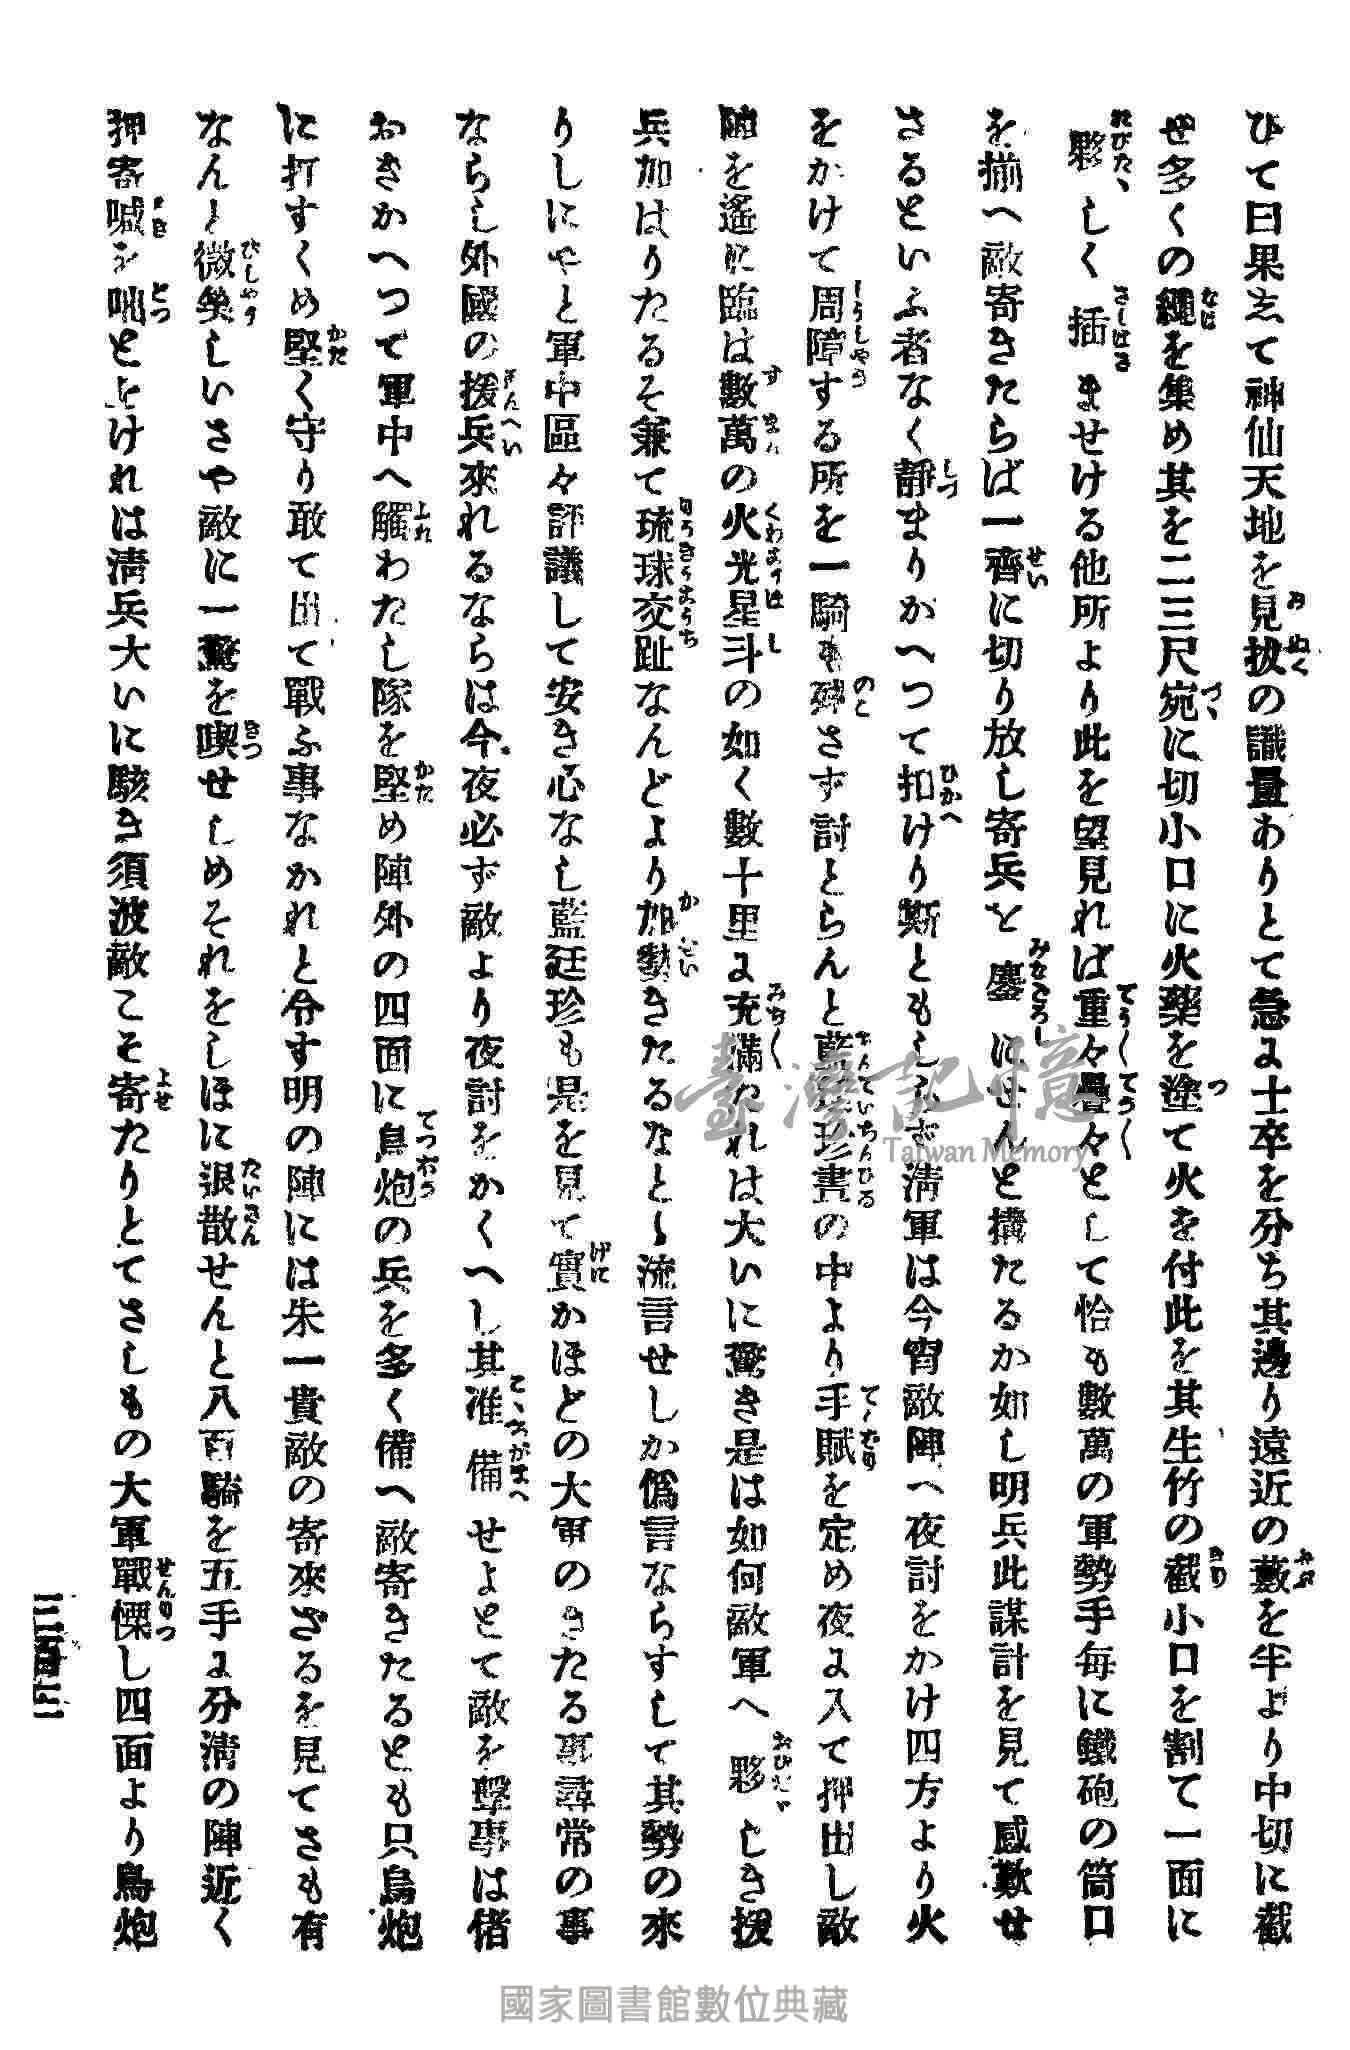 ひて曰果して神仙天地を見拔の識量ありとて急に士卒を分ち其邊り遠近の藪を半より中切に截
せ多くの繩を集め其を二三尺宛に切小口に火藥を塗て火を付此を其生竹の截小口を割て一面に
夥しく插ませける他所より此を望見れば重々疊々として恰も數萬の軍勢手每に鐵砲の筒口
を揃へ敵寄きたらば一齊に切り放し寄兵を鏖にせんと搆たるか如し明兵此謀計を見て感歎せ
さるといふ者なく靜まりかへつて扣けり斯ともしらず淸軍は今宵敵陣へ夜討をかけ四方より火
をかけて周障する所を一騎も殘さず討とらんと藍廷珍書の中より手賦を定め夜に入て押出し敵
陣を遙に臨は數萬の火光星斗の如く數十里に充滿たれは大いに驚き是は如何敵軍へ夥しき援
兵加はりたるそ兼て琉球交趾なんどより加勢きたるなとゝ流言せしか僞言ならすして其勢の來
りしにやと軍中區々評議して安き心なし藍廷珍も是を見て實かほどの大軍のきたる事尋常の事
ならし外國の援兵來れるならは今夜必ず敵より夜討をかくへし其准備せよとて敵を擊事は偖
おきかへつて軍中へ觸わたし隊を堅め陣外の四面に鳥炮の兵を多く備へ敵寄きたるとも只鳥炮
に打すくめ堅く守り敢て出て戰ふ事なかれと令す明の陣には朱一貴敵の寄來ざるを見てさも有
なんと微笑しいさや敵に一驚を喫せしめそれをしほに退散せんと八百騎を五手に分淸の陣近く
押寄喊を咄と上けれは淸兵大いに駭き須波敵こそ寄たりとてさしもの大軍戰慄し四面より鳥炮
三百三
臺灣記憶
Taiwan Memory
國家圖書館數位典藏